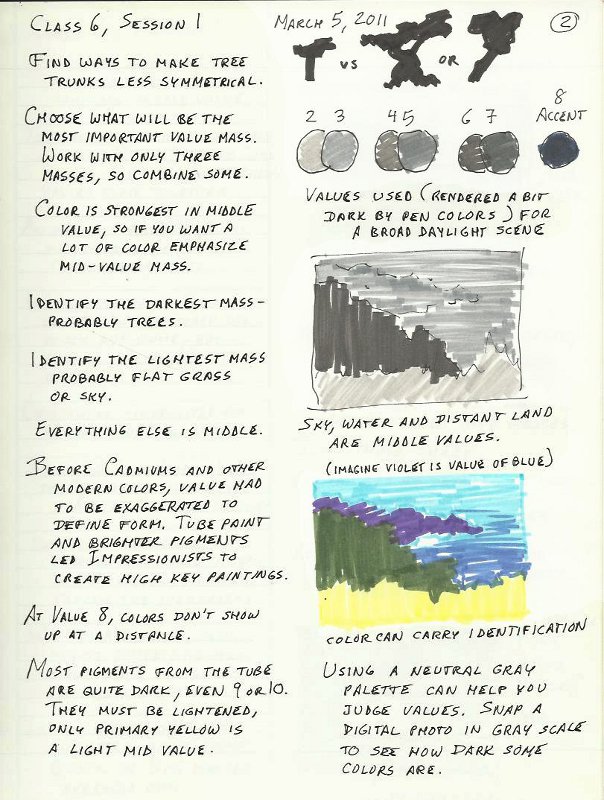 Class 6, Session 1
March 5, 2011
2
Find ways to make tree
trunks less symmetrical.
Choose what will be the
most important value mass.
Work with only three
masses, so combine some.
Color is strongest in middle
value, so if you want a
lot of color emphasize
mid-value mass.
Identify the darkest mass-
probably trees.
Identify the lightest mass
probably flat grass
or sky.
Everything else is middle.
Before Cadmiums and other
modern colors, value had
to be exaggerated to
define form. Tube paint
and brighter pigments
led Impressionists to
create high key paintings.
At Value 8, colors don't show
up at a distance.
Most pigments from the tube
are quite dark, even 9 or 10.
They must be lightened,
only primary yellow is
a light mid value.
vs or
2 3 4 5 6 7 8
Accent
Values used (rendered a bit
dark by pen colors) for
a broad daylight scene
Sky, water and distant land
are middle values.
(imagine violet is value of blue)
Color can carry identification
Using a neutral gray
palette can help you
judge values. Snap a
digital photo in gray scale
to see how dark some
colors are.